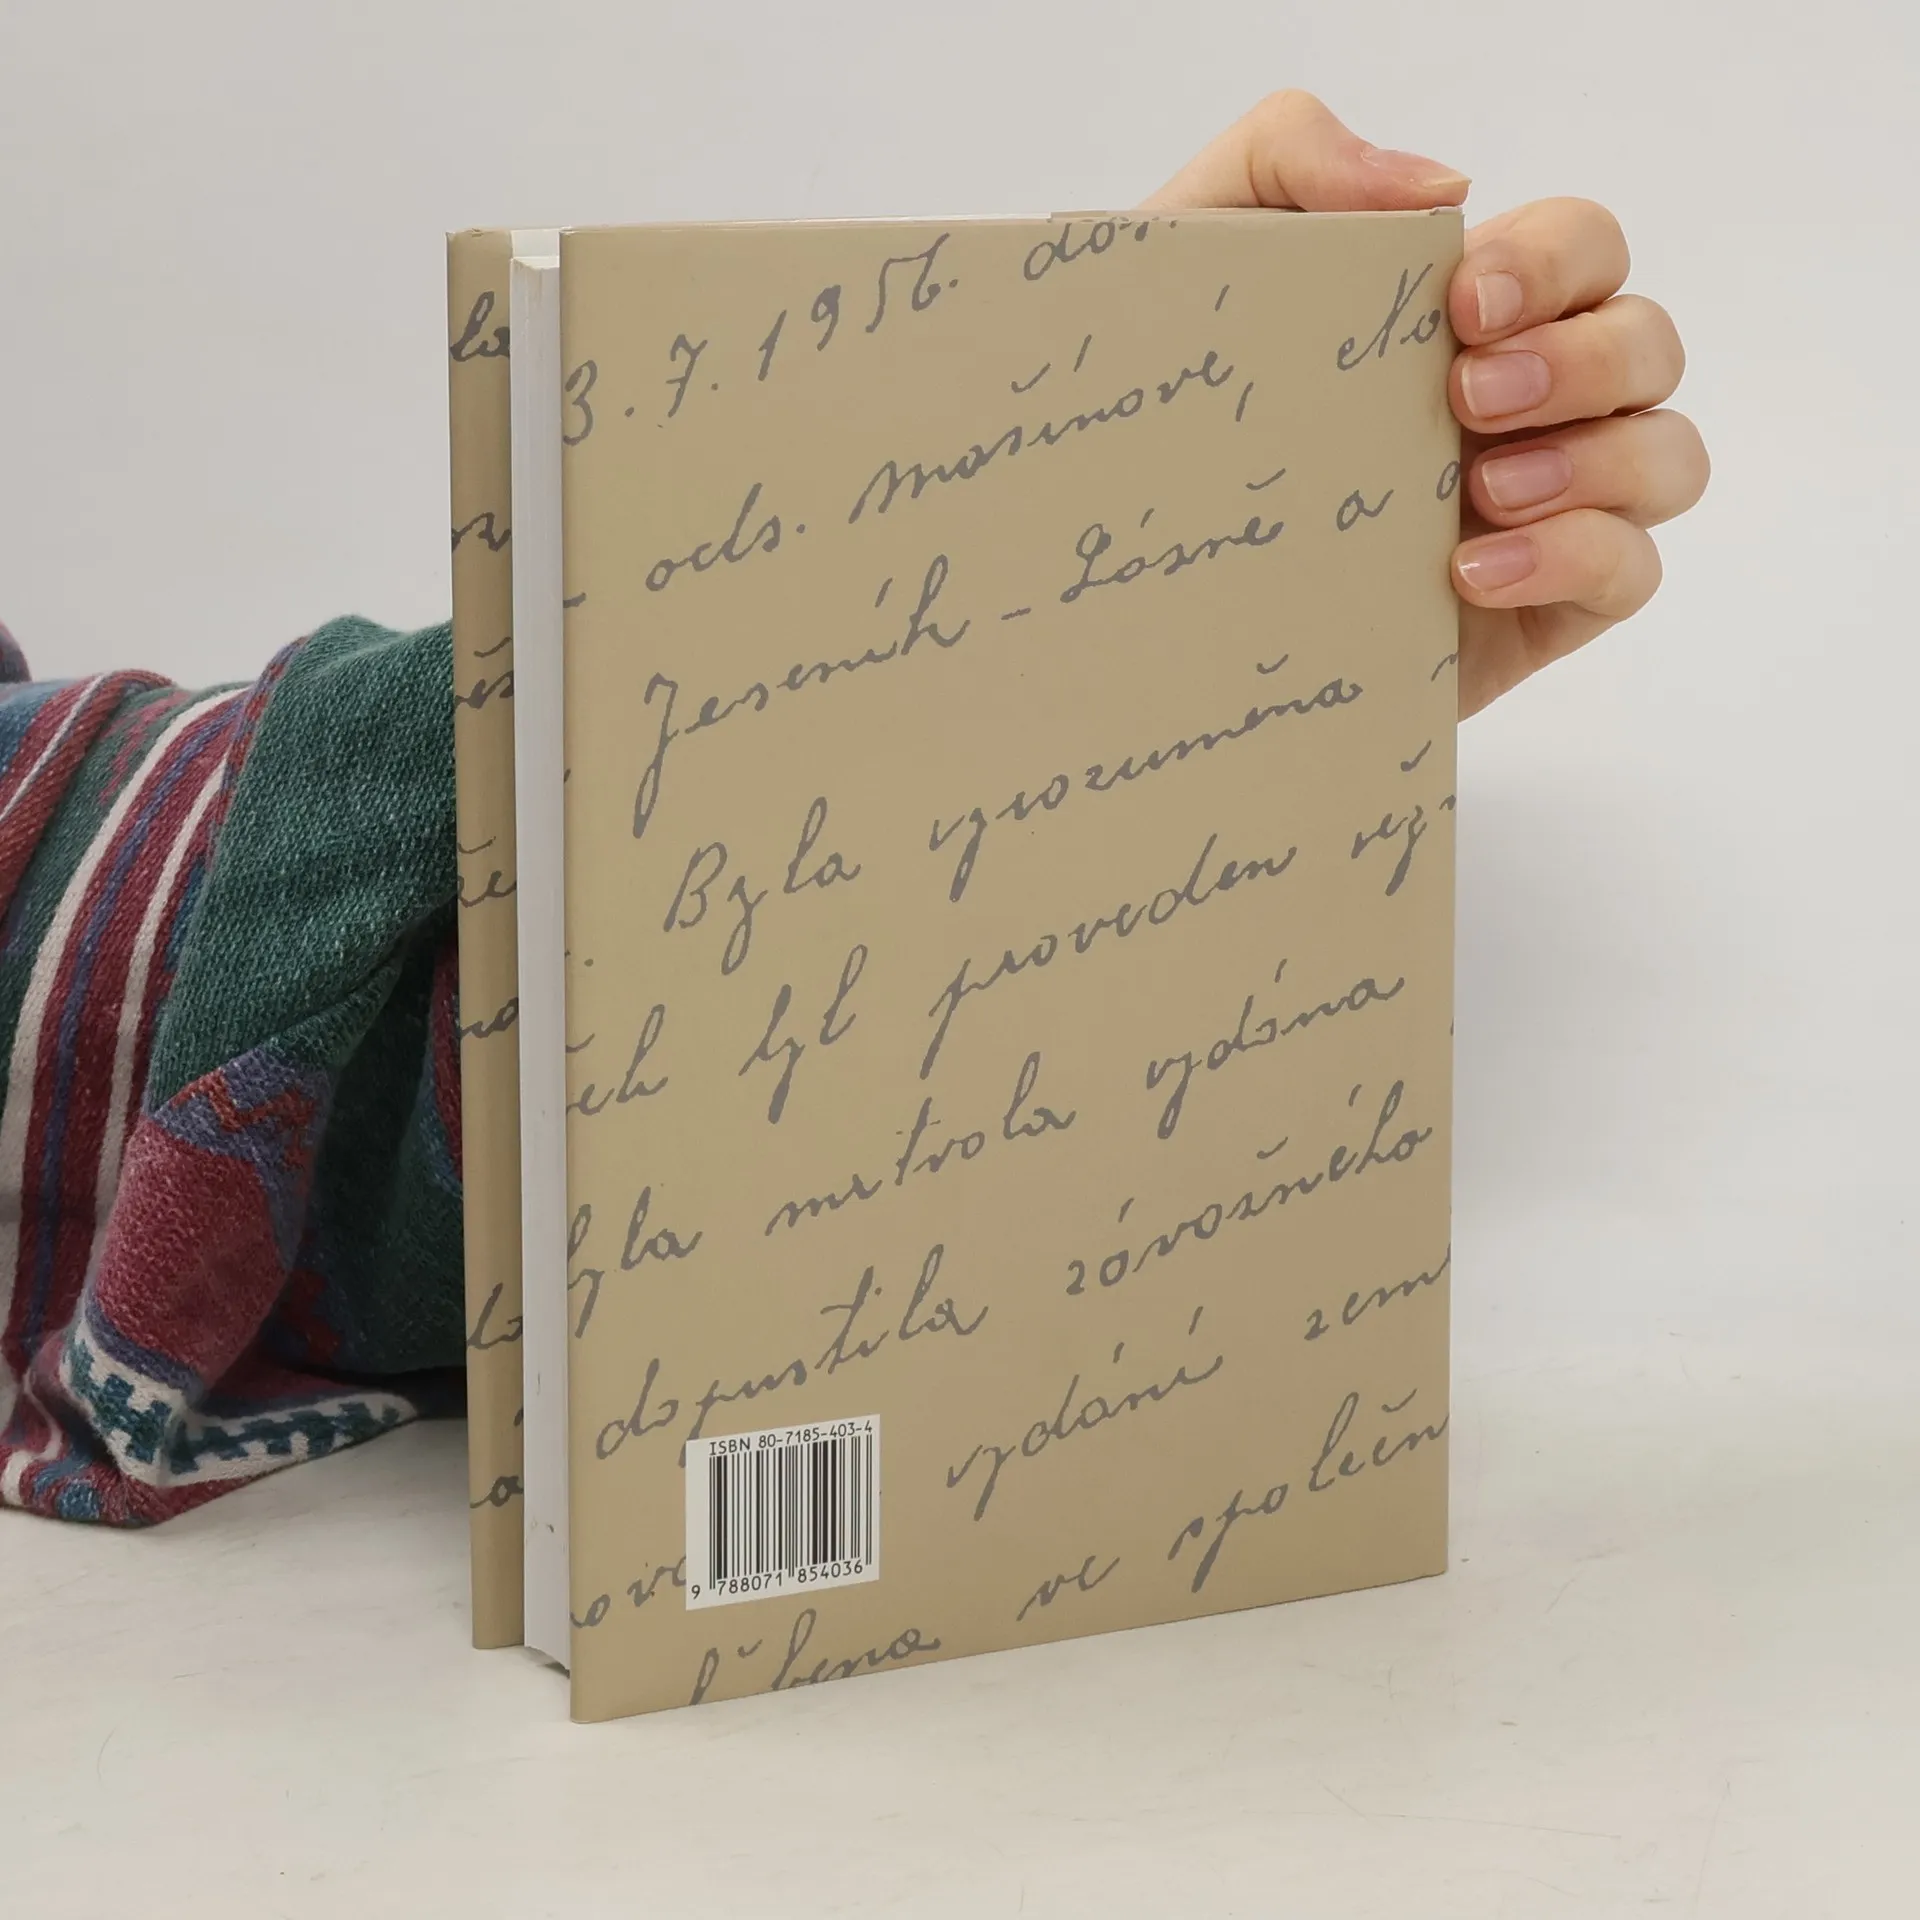 3. 7. 1956. dor.
ods. Mašínové, No
Jeseník - Lázně a
Byla vyrozuměna
byl proveden
byla mrtvola vydána
dopustila závažného
vydání zem
ve společn
ISBN 80-7185-403-4
9 788071 854036